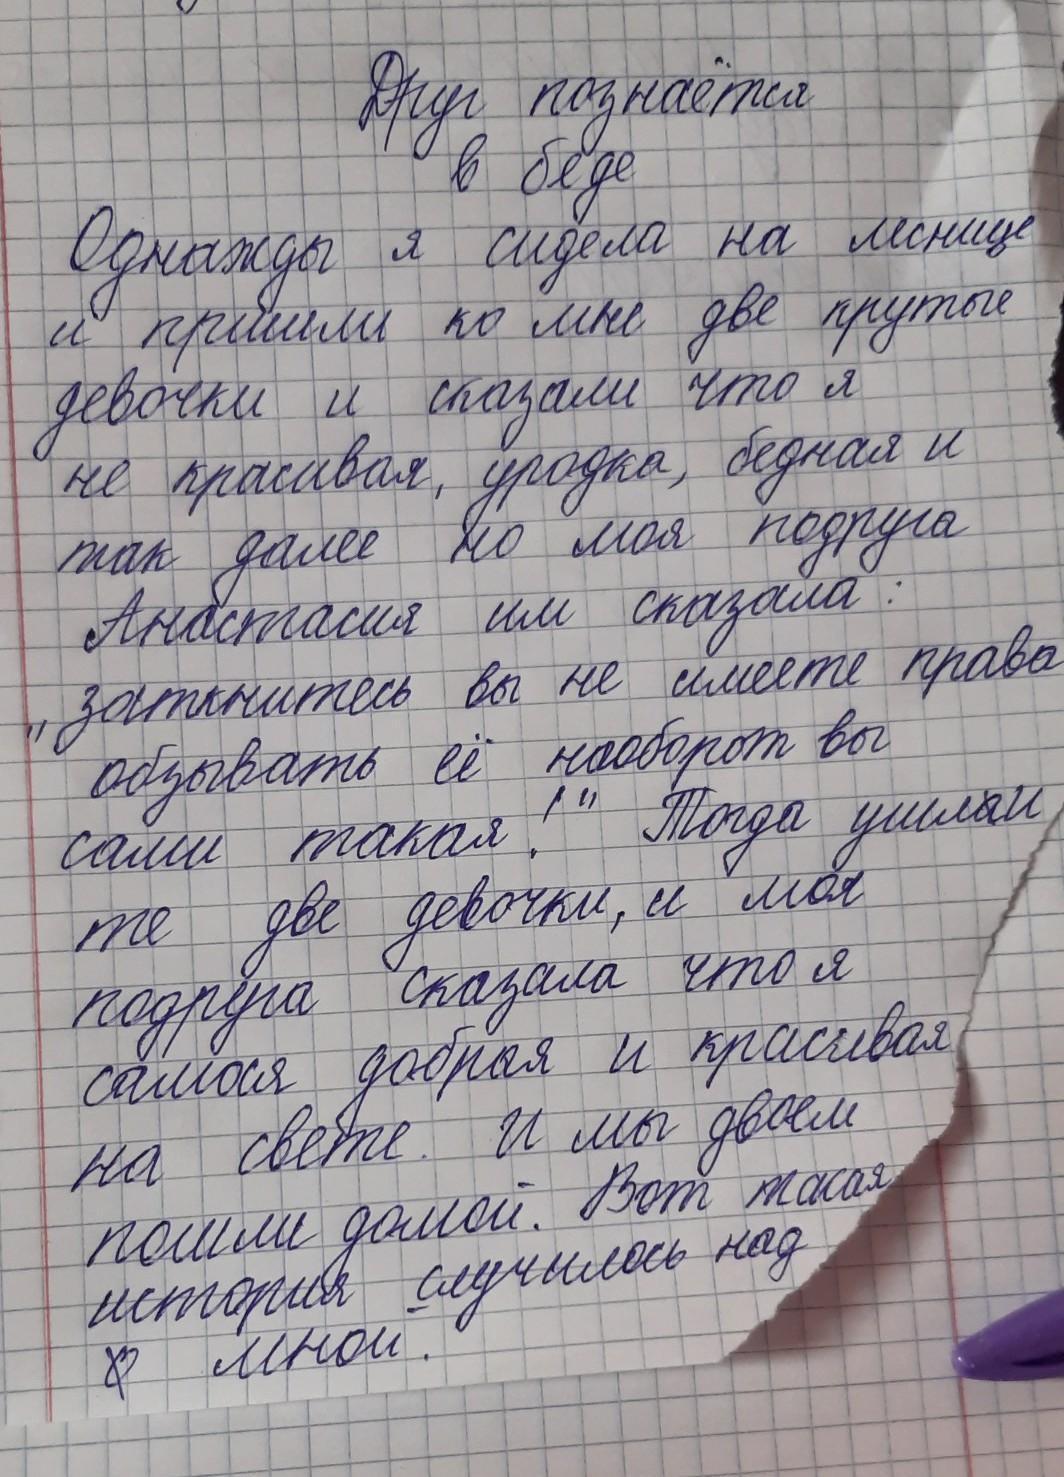 Друг познаётся
в беде
Однажды я сидела на леснице
и пришли ко мне две крутые
девочки и сказали что я
не красивая, уродка, бедная и
так далее но моя подруга
Анастасия им сказала:
„заткнитесь вы не имеете права
обзывать её наоборот вы
сами такая!" Тогда ушлаи
те две девочки, и моя
подруга сказала что я
самося добрая и красивая
на свете. И мы двоем
пошли домой. Вот такая
история случилось над
мной.